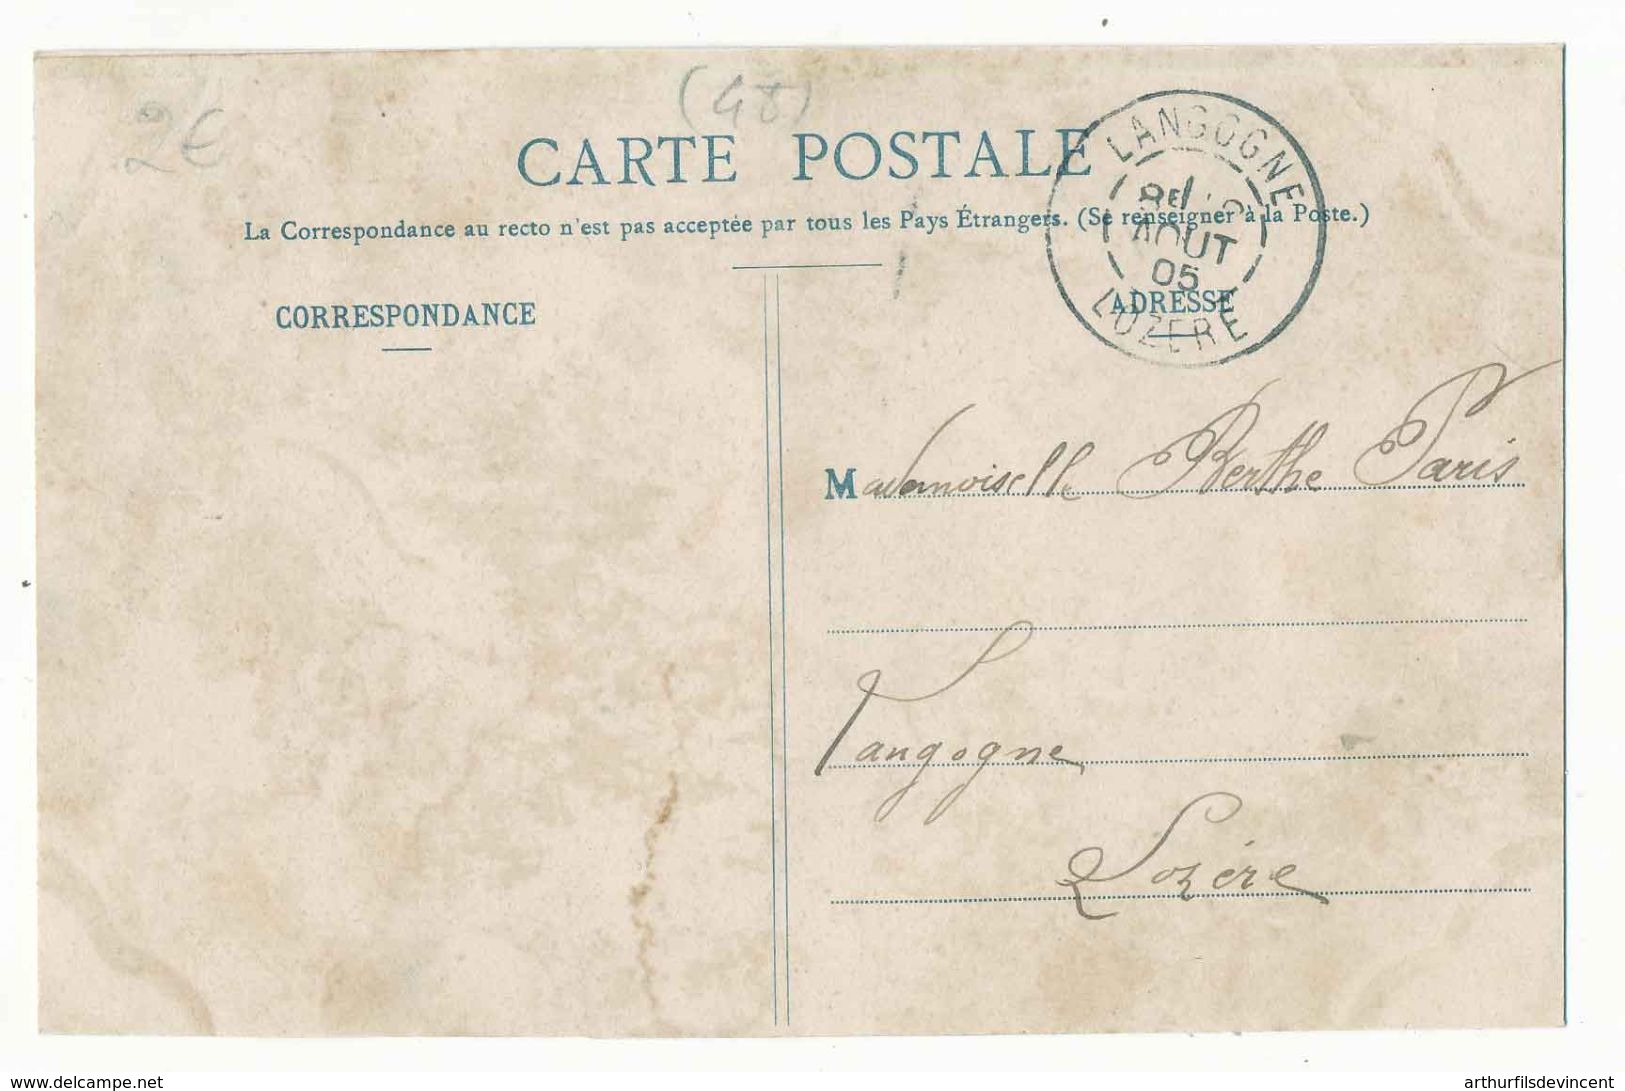 2€
(48)
CARTE POSTALE
La Correspondance au recto n'est pas acceptée par tous les Pays Étrangers. (Se renseigner à la Poste.)
LANGOGNE
AOUT
05
LOZERE
CORRESPONDANCE
ADRESSE
Mademoiselle Berthe Paris
Langogne
Lozére
www.delcampe.net
arthurfilsdevincent